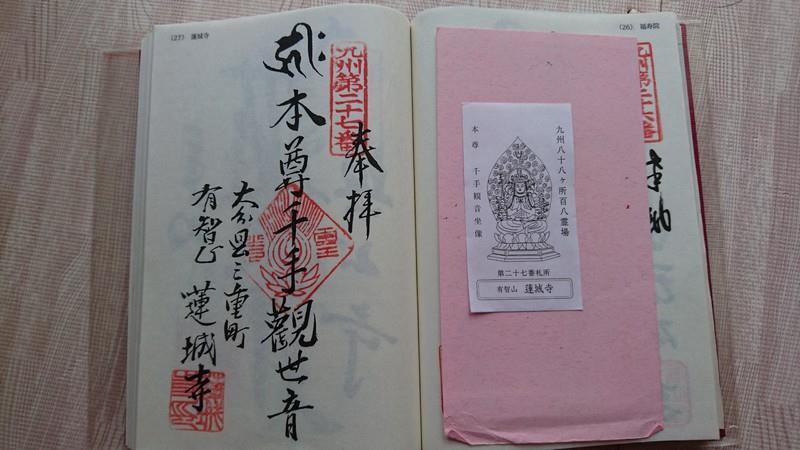 (26) 福寿院
九州第二十六番
奉納
九州八十八ヶ所百八霊場
本尊 千手観音坐像
第二十七番札所
有智山 蓮城寺
(27) 蓮城寺
九州第二十七番
奉拝
本尊千手觀世音
大分県三重町
有智山
蓮城寺